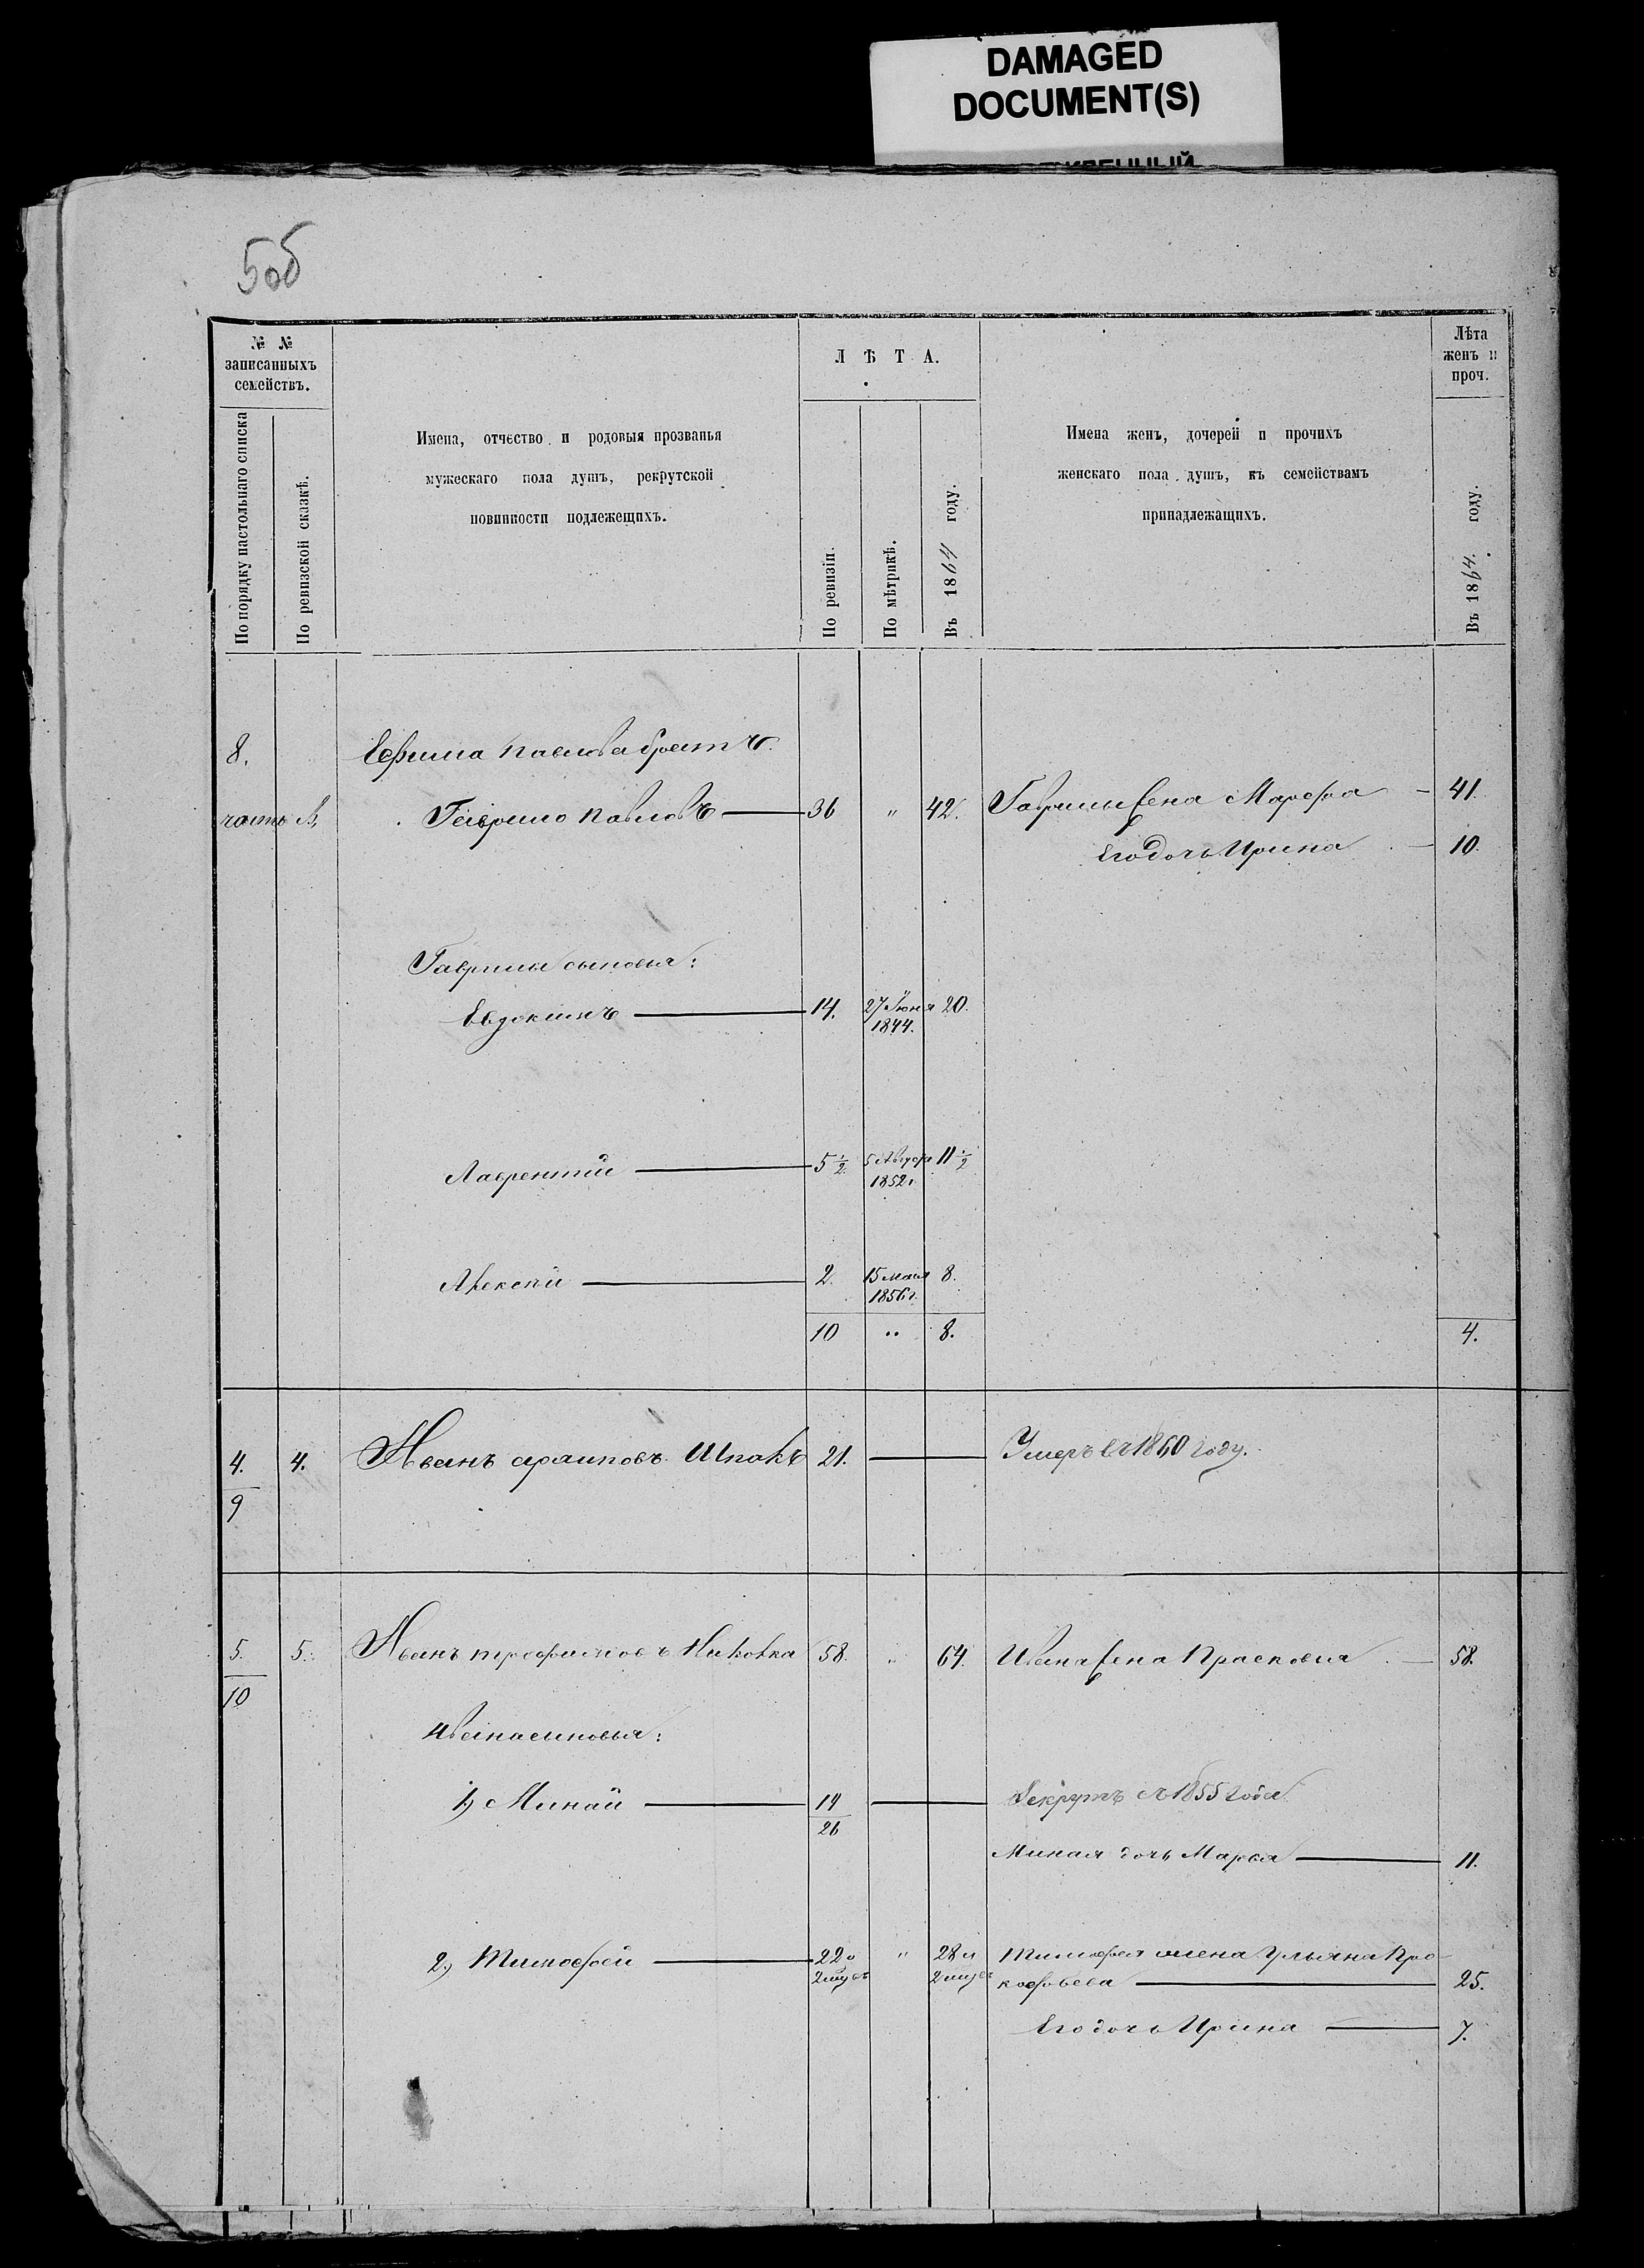 DAMAGED
DOCUMENT(S)
5об
№ №
записанныхъ
семействъ.
По порядку настольнаго списка
По ревизской сказкѣ.
Имена, отчество и родовыя прозванья
мужескаго пола душъ, рекрутской
повинности подлежещихъ.
ЛѢТА.
По ревизіи.
По мѣтрикѣ.
Въ 1864 году.
Имена женъ, дочерей и прочихъ
женскаго пола душъ, къ семействамъ
принадлежащихъ.
Лѣта
женъ и
проч.
Въ 1864. году.
8. Ефима Павлова братъ.
часть Гаврило Павловъ 36 " 42. Гаврилы жена Марфа 41.
Его дочь Ирина 10.
Гаврилы сыновья:
Евдокимъ 14. 27 Іюня 20.
1844.
Лаврентий 5 1/2. 5 Августа 11 1/2
1852г.
Алексѣй 2. 15 мая 8.
1856г.
10 " 8. 4.
4. 4. Иванъ архиповъ Шпакъ 21. Умеръ въ 1860 году.
9
5. 5. Иванъ трофимовъ 58. " 64. Ивана жена Прасковья 58.
10
Ивана сыновья:
1, Минай 19 Рекрутъ съ 1855 года
26
Миная дочь Марья 11.
2, Тимофей 22 и " 28 и Тимофея жена Ульяна Про-
2 мцъ 2 мцъ кофьева 25.
Его дочь Ирина 7.